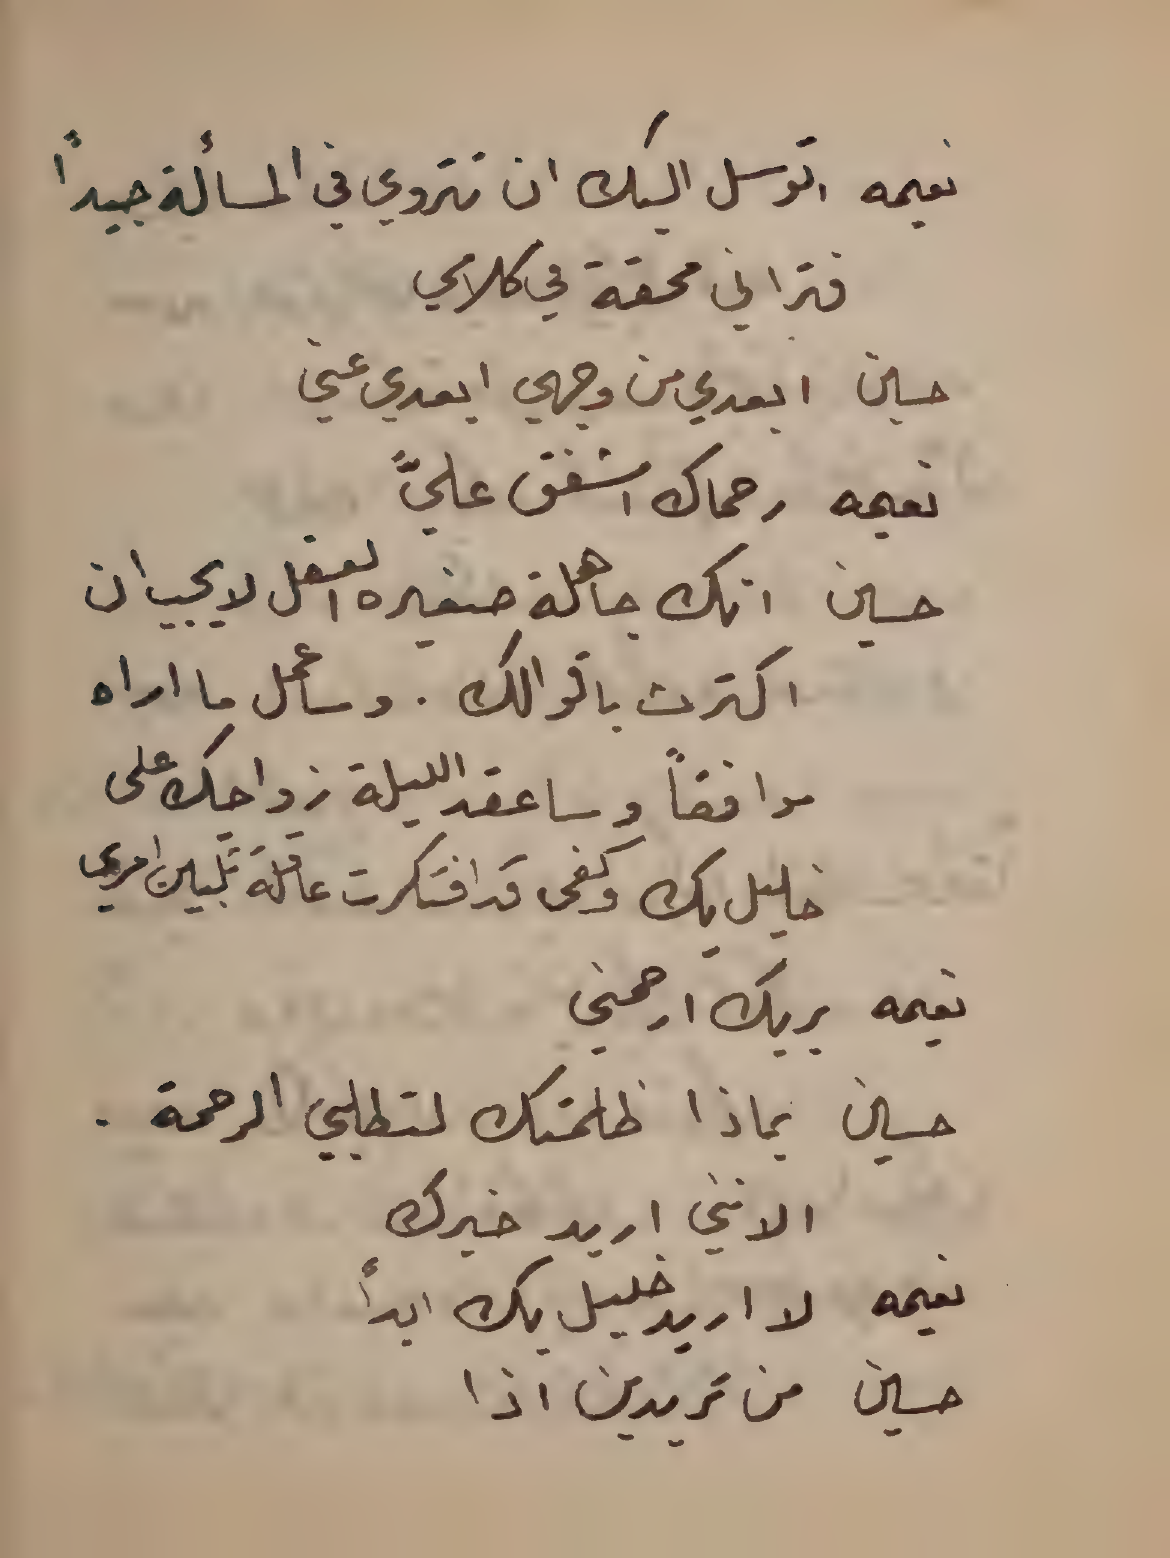 نعيمه اتوسل اليك ان تتروي في المسألة جيداً
فتراني محقة في كلامي
حسين ابعدي من وجهي ابعدي عني
نعيمه رحماك اشفق عليَّ
حسين انك جاهلة صغيره العقل لا يجب ان
اكترث باقوالك . وسأعمل ما اراه
موافقاً وساعقد الليلة زواجك على
خليل بك وكفى قد افتكرت عاقلة تلبين امري
نعيمه بربك ارحمني
حسين بماذا ظلمتك لتطلبي الرحمة .
الانني اريد خيرك
نعيمه لا اريد خليل بك ابدأ
حسين من تريدين اذا